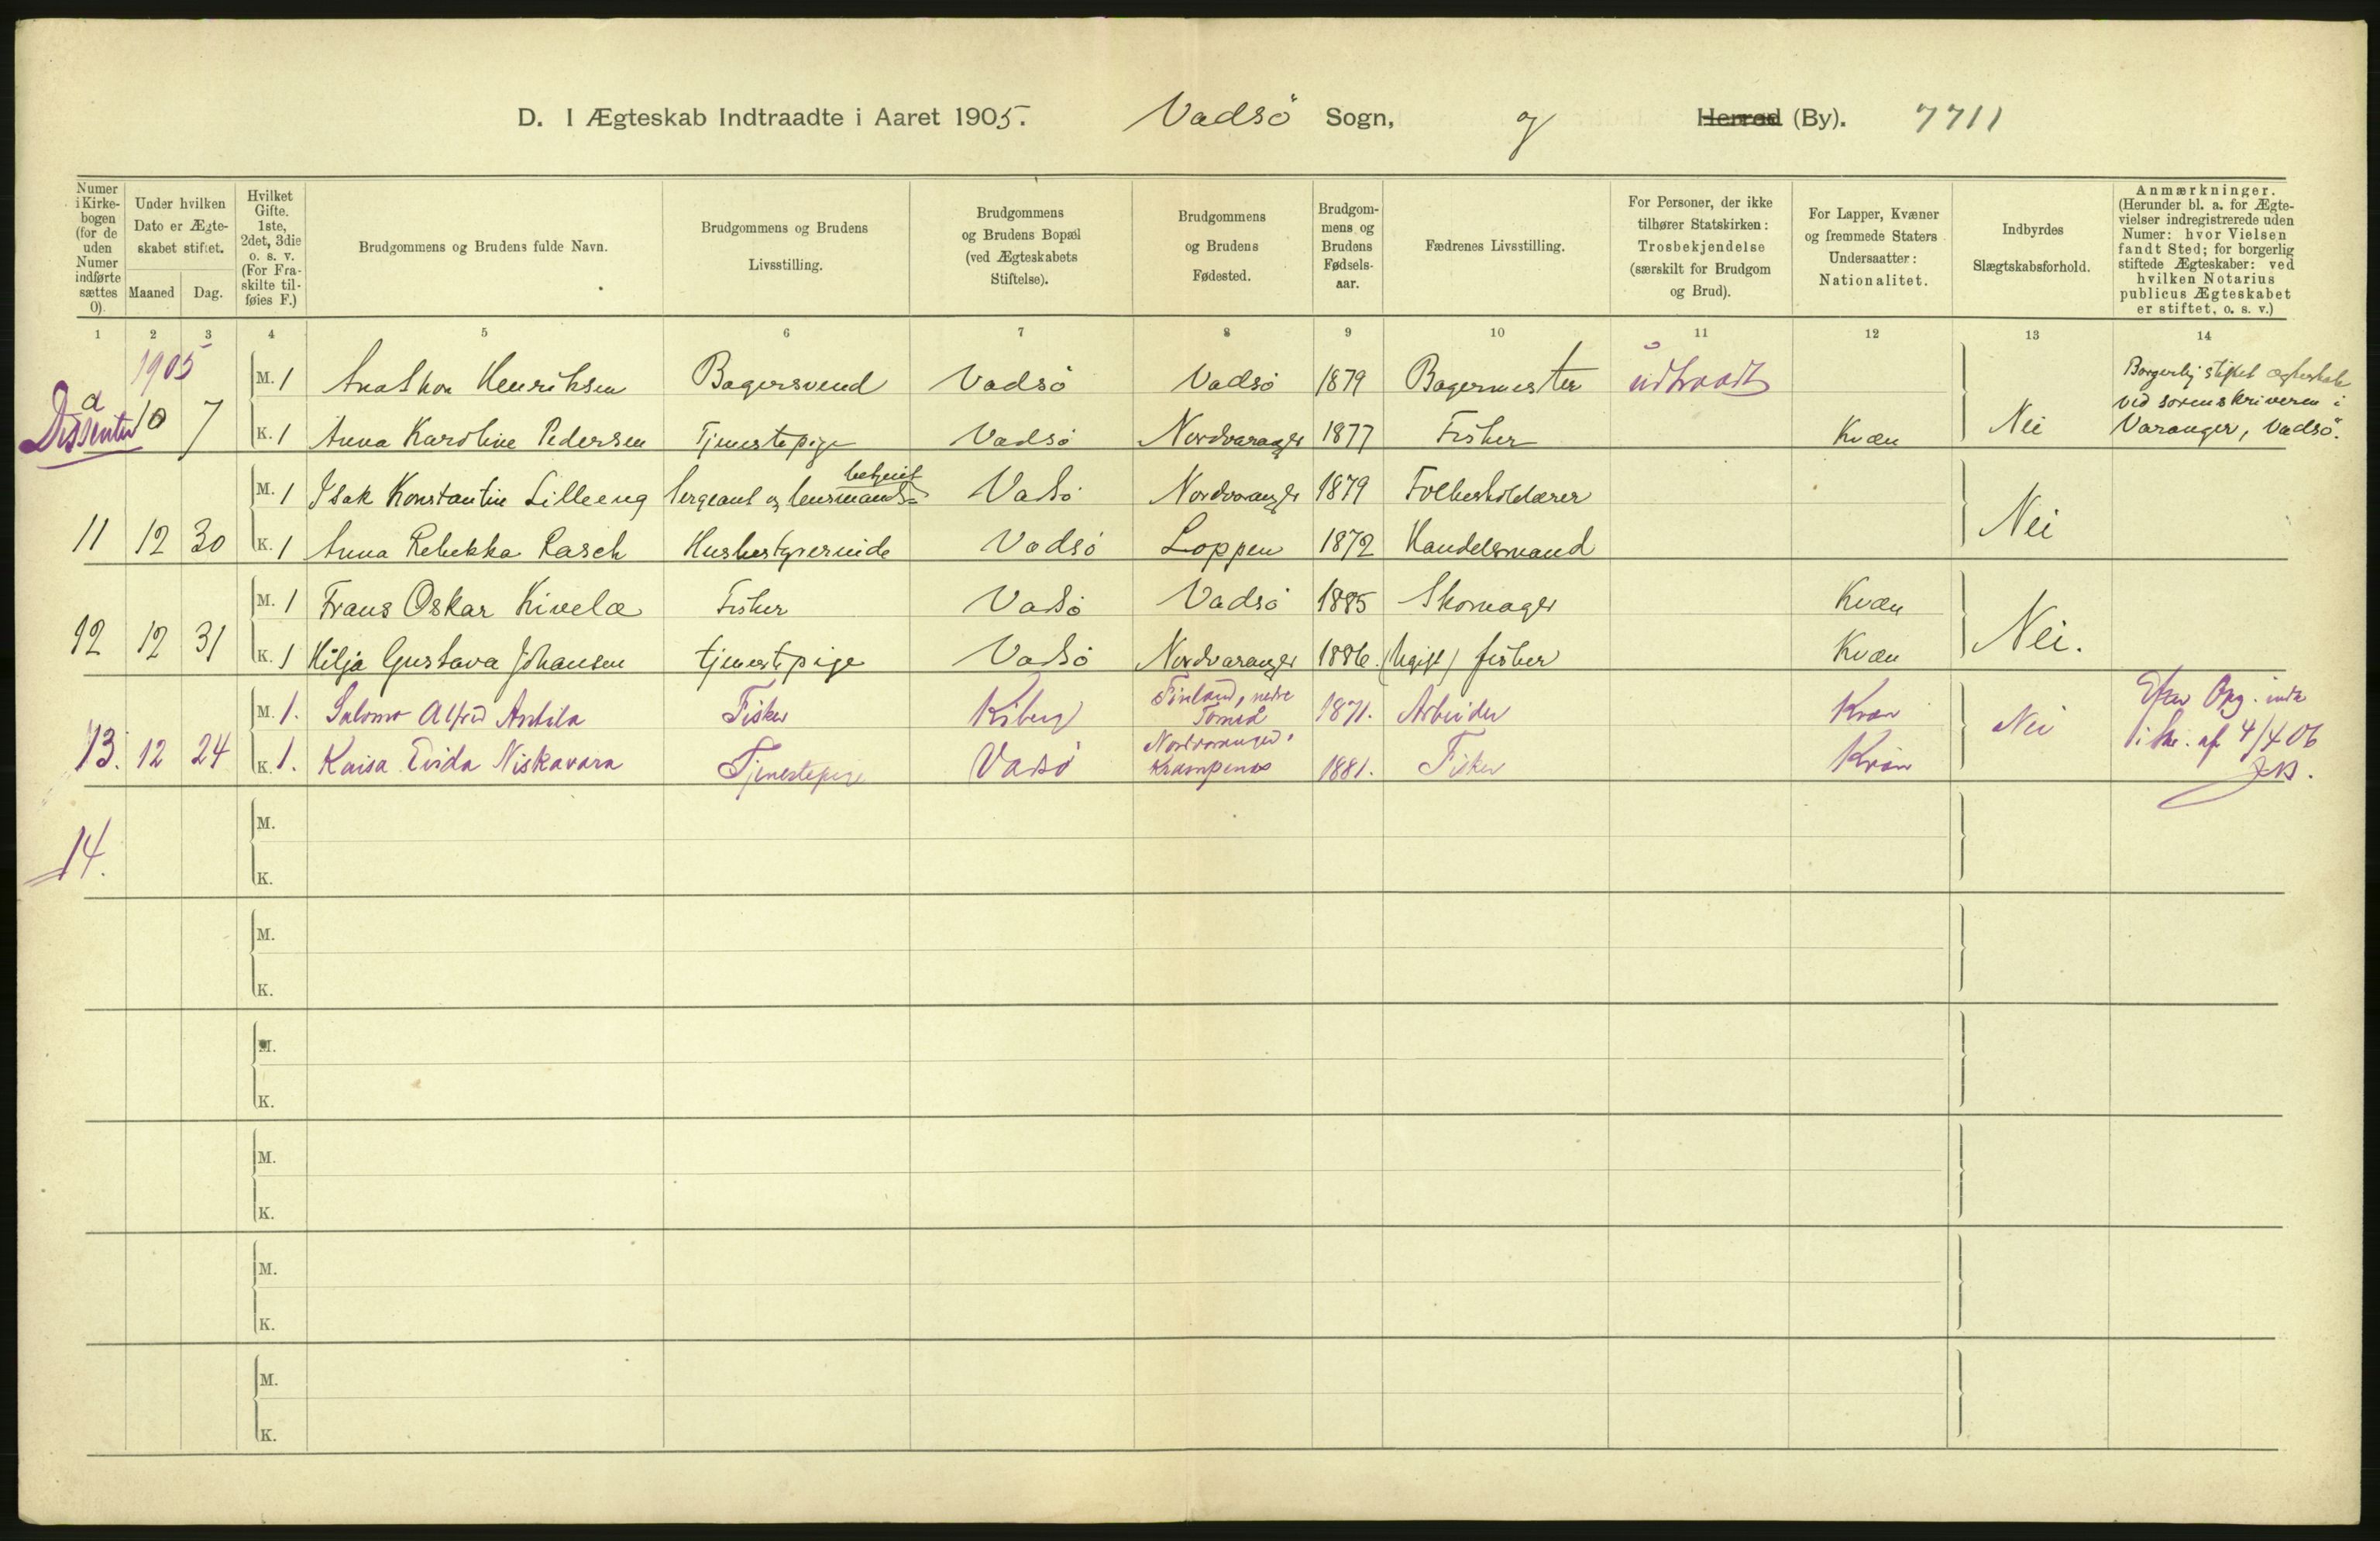 D. I Ægteskab Indtraadte i Aaret 1905. Vadsö Sogn, og Herred (By). 7711
Numer i Kirkebogen (for de uden Numer indførte sættes 0).
Under hvilken Dato er Ægteskabet stiftet.
Maaned Dag.
Hvilket Gifte. 1ste, 2det, 3die o. s. v. (For Fraskilte tilføies F.)
Brudgommens og Brudens fulde Navn.
Brudgommens og Brudens Livsstilling.
Brudgommens og Brudens Bopæl (ved Ægteskabets Stiftelse).
Brudgommens og Brudens Fødested.
Brudgommens og Brudens Fødselsaar.
Fædrenes Livsstilling.
For Personer, der ikke tilhører Statskirken: Trosbekjendelse (særskilt for Brudgom og Brud).
For Lapper, Kvæner og fremmede Staters Undersaatter: Nationalitet.
Indbyrdes Slægtskabsforhold.
Anmærkninger. (Herunder bl. a. for Ægtevielser indregistrerede uden Numer: hvor Vielsen fandt Sted; for borgerlig stiftede Ægteskaber: ved hvilken Notarius publicus Ægteskabet er stiftet, o. s. v.)
1 2 3 4 5 6 7 8 9 10 11 12 13 14
1905
a
Dissenter 10 7
M. 1 Henriksen Bagersvend Vadsö Vadsö 1879 Bagermester udtraadt
K. 1 Anna Karoline Pedersen Tjenestepige Vadsö Nordvaranger 1877 Fisker Kvæn Nei
Borgerlig stiftet ægteskab
ved sorenskriveren i
Varanger, Vadsö.
11 12 30
M. 1 Isak Konstantin Lilleeng Sergeant og lensmandsbetjent Vadsö Nordvaranger 1879 Folkeskolelærer
K. 1 Anna Rebekka Rasch Husbestyrerinde Vadsö Loppen 1872 Handelsmand Nei
12 12 31
M. 1 Frans Oskar Kivela Fisker Vadsö Vadsö 1885 Skomager Kvæn
K. 1 Hilja Gustava Johansen tjenestepige Vadsö Nordvaranger 1886. (Ugift) fisker Kvæn Nei.
13. 12 24
M. 1. Salomo Alfred Antila Fisker Kiberg Finland, nedre Torneå 1871. Arbeider Kvæn
K. 1. Kaisa Niskavara Tjenestepige Vadsö Nordvaranger, Krampenes 1881. Fisker Kvæn Nei
Efter Opg. indk.
i Skr. af 4/4 06
14.
M.
K.
M.
K.
M.
K.
M.
K.
M.
K.
M.
K.